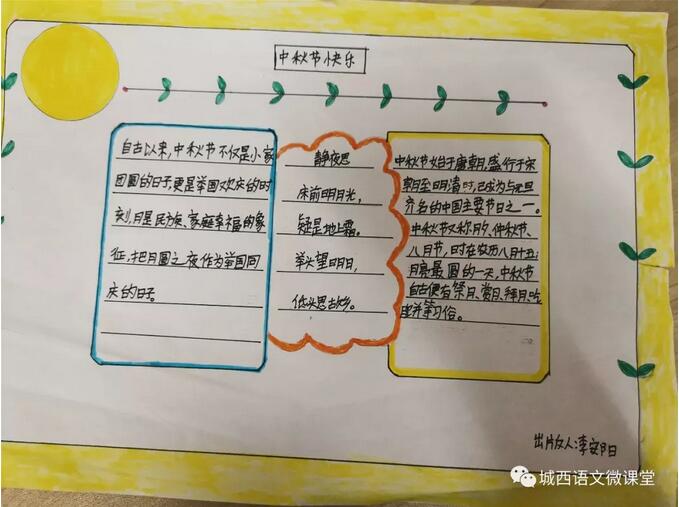 中秋节快乐
自古以来,中秋节不仅是小家
团圆的日子,更是举国欢庆的时
刻,月是民族、家庭幸福的象
征,把月圆之夜作为举国同
庆的日子。
静夜思
床前明月光,
疑是地上霜。
举头望明月,
低头思古乡。
中秋节始于唐朝,盛行于宋
朝至明清时,已成为与元旦
齐名的中国主要节日之一。
中秋节又称月夕、仲秋节、
八月节,时在农历八月十五;
月亮最圆的一天,中秋节
自古便有祭月、赏月、拜月、吃
月饼等习俗。
出版人:李安阳
城西语文微课堂